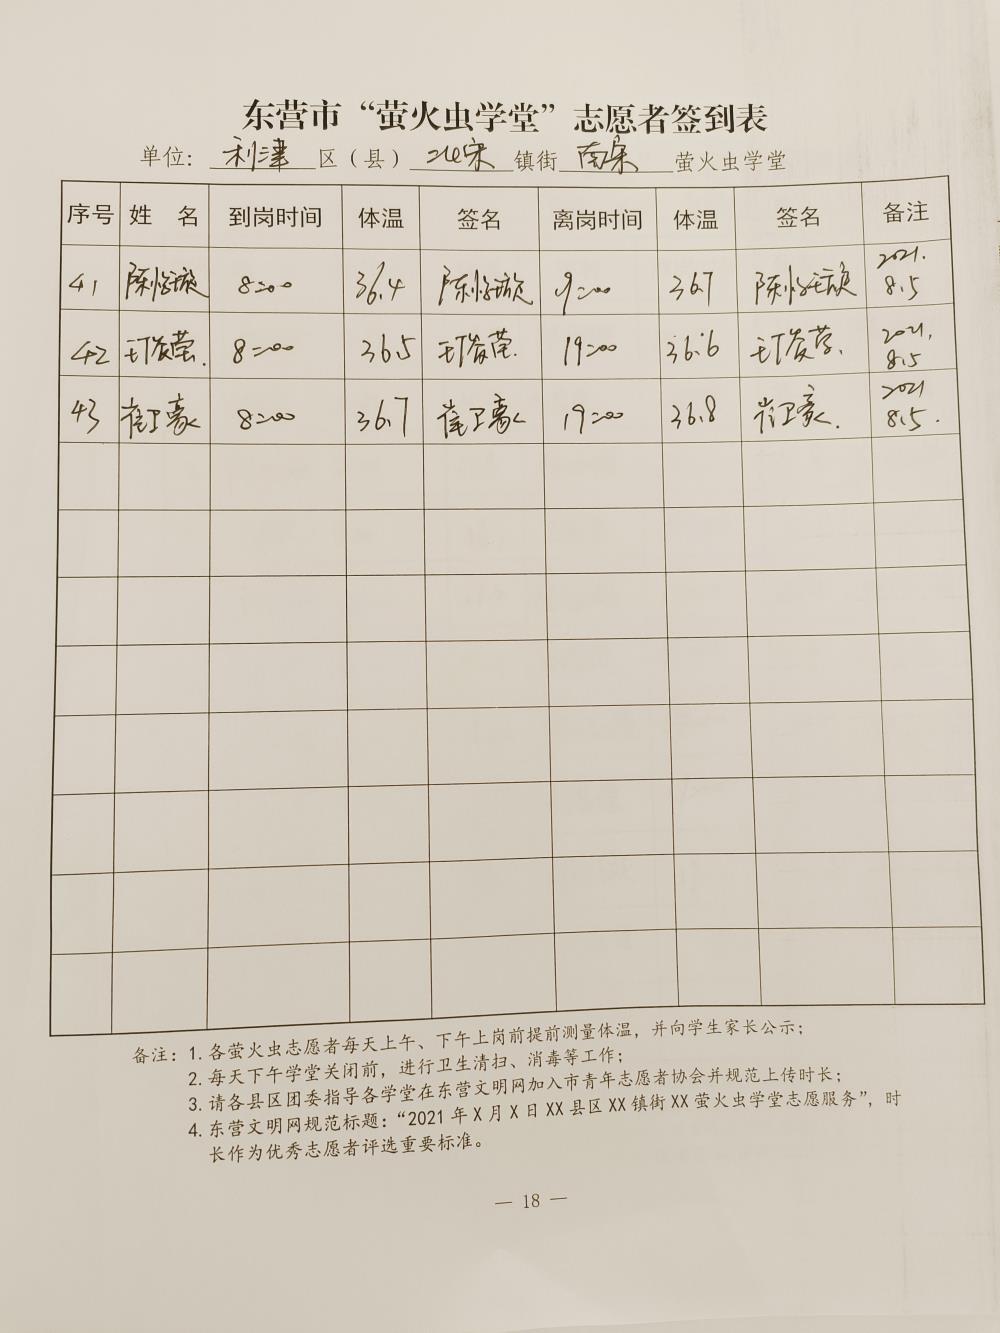 东营市“萤火虫学堂”志愿者签到表
单位：利津区（县）北宋镇街南宋萤火虫学堂
序号 姓 名 到岗时间 体温 签名 离岗时间 体温 签名 备注
41 8:00 36.4 9:00 36.7 2021.8.5
42 8:00 36.5 19:00 36.6 2021.8.5
43 崔卫豪 8:00 36.7 崔卫豪 19:00 36.8 崔卫豪. 2021 8.5.
备注：1. 各萤火虫志愿者每天上午、下午上岗前提前测量体温，并向学生家长公示；
2. 每天下午学堂关闭前，进行卫生清扫、消毒等工作；
3. 请各县区团委指导各学堂在东营文明网加入市青年志愿者协会并规范上传时长；
4. 东营文明网规范标题：“2021 年 X 月 X 日 XX 县区 XX 镇街 XX 萤火虫学堂志愿服务”，时
长作为优秀志愿者评选重要标准。
— 18 —